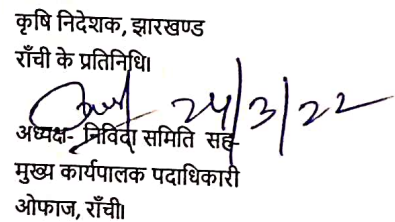 कृषि निदेशक, झारखण्ड
राँची के प्रतिनिधि।
24/3/22
अध्यक्ष- निविदा समिति सह-
मुख्य कार्यपालक पदाधिकारी
ओफाज, राँची।